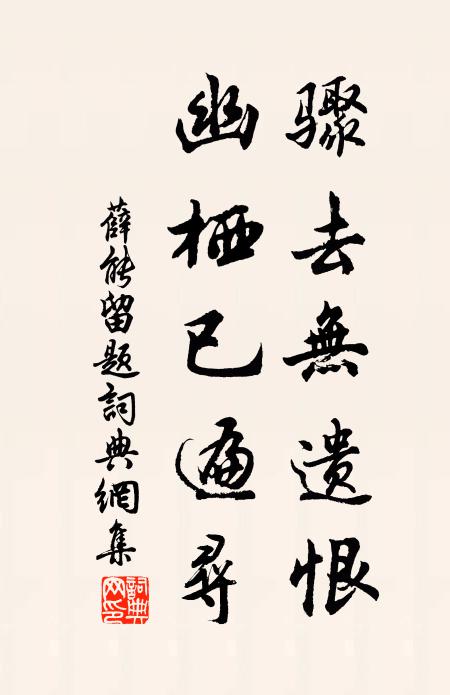 驟去無遺恨
幽栖已遍尋
薛能留題詞典網集
詞典网印